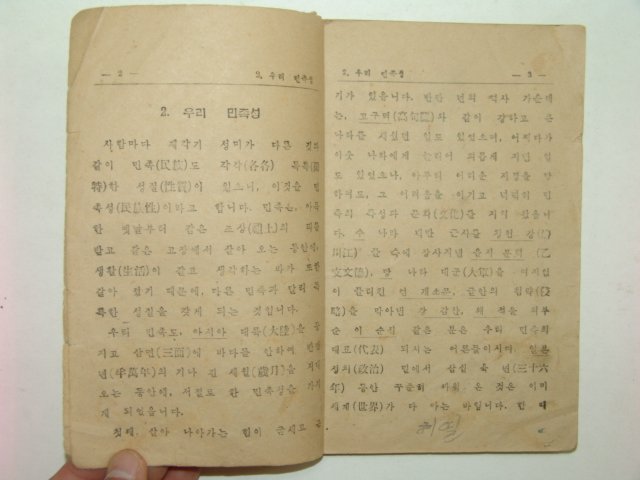 — 2 — 2. 우리 민족성
2. 우리 민족성
사람마다 제각기 성미가 다른 것과
같이 민족(民族)도 각각(各各) 독특(
特)한 성질(性質)이 있으니, 이것을 민
족성(民族性)이라고 합니다. 민족은, 아득
한 옛날부터 같은 조상(祖上)의 피를
받고 같은 고장에서 살아 오는 동안에,
생활(生活)이 같고 생각하는 바가 또한
같아 졌기 때문에, 다른 민족과 달리 독
특한 성질을 갖게 되는 것입니다.
우리 민족도, 아시아 대륙(大陸)을 등
지고 삼면(三面)에 바다를 안하여 반만
년(半萬年)의 기나 긴 세월(歲月)을 지내
오는 동안에, 저절로 한 민족성을 가지
게 되었읍니다.
첫째, 살아 나아가는 힘이 굳세고 끈
2. 우리 민족성 — 3 —
기가 있읍니다. 반만 년의 역사 가운데
는, 고구려(高句麗)와 같이 강하고 큰
나라를 세웠던 일도 있었으며, 어쩌다가
이웃 나라에게 눌리어 괴롭게 지낸 일
도 있었으나, 아무리 어려운 지경을 당
하여도, 그 어려움을 이기고 넉넉히 민
족의 특성과 문화(文化)를 지켜 왔읍니
다. 수 나라 백만 군사를 청천 강(
川江) 물 속에 장사지낸 을지 문덕(乙
支文德), 당 나라 대군(大軍)을 여지없
이 물리친 연 개소문, 글안의 침략(侵
略)을 막아낸 강 감찬, 왜 적을 쳐부
순 이 순신 같은 분은 우리 민족의
대표(代表) 되시는 어른들이시다. 일본
정치(政治) 밑에서 삼십 육 년(三十六
年) 동안 꾸준히 싸워 온 것은 이미
세계(世界)가 다 아는 바입니다. 한 때